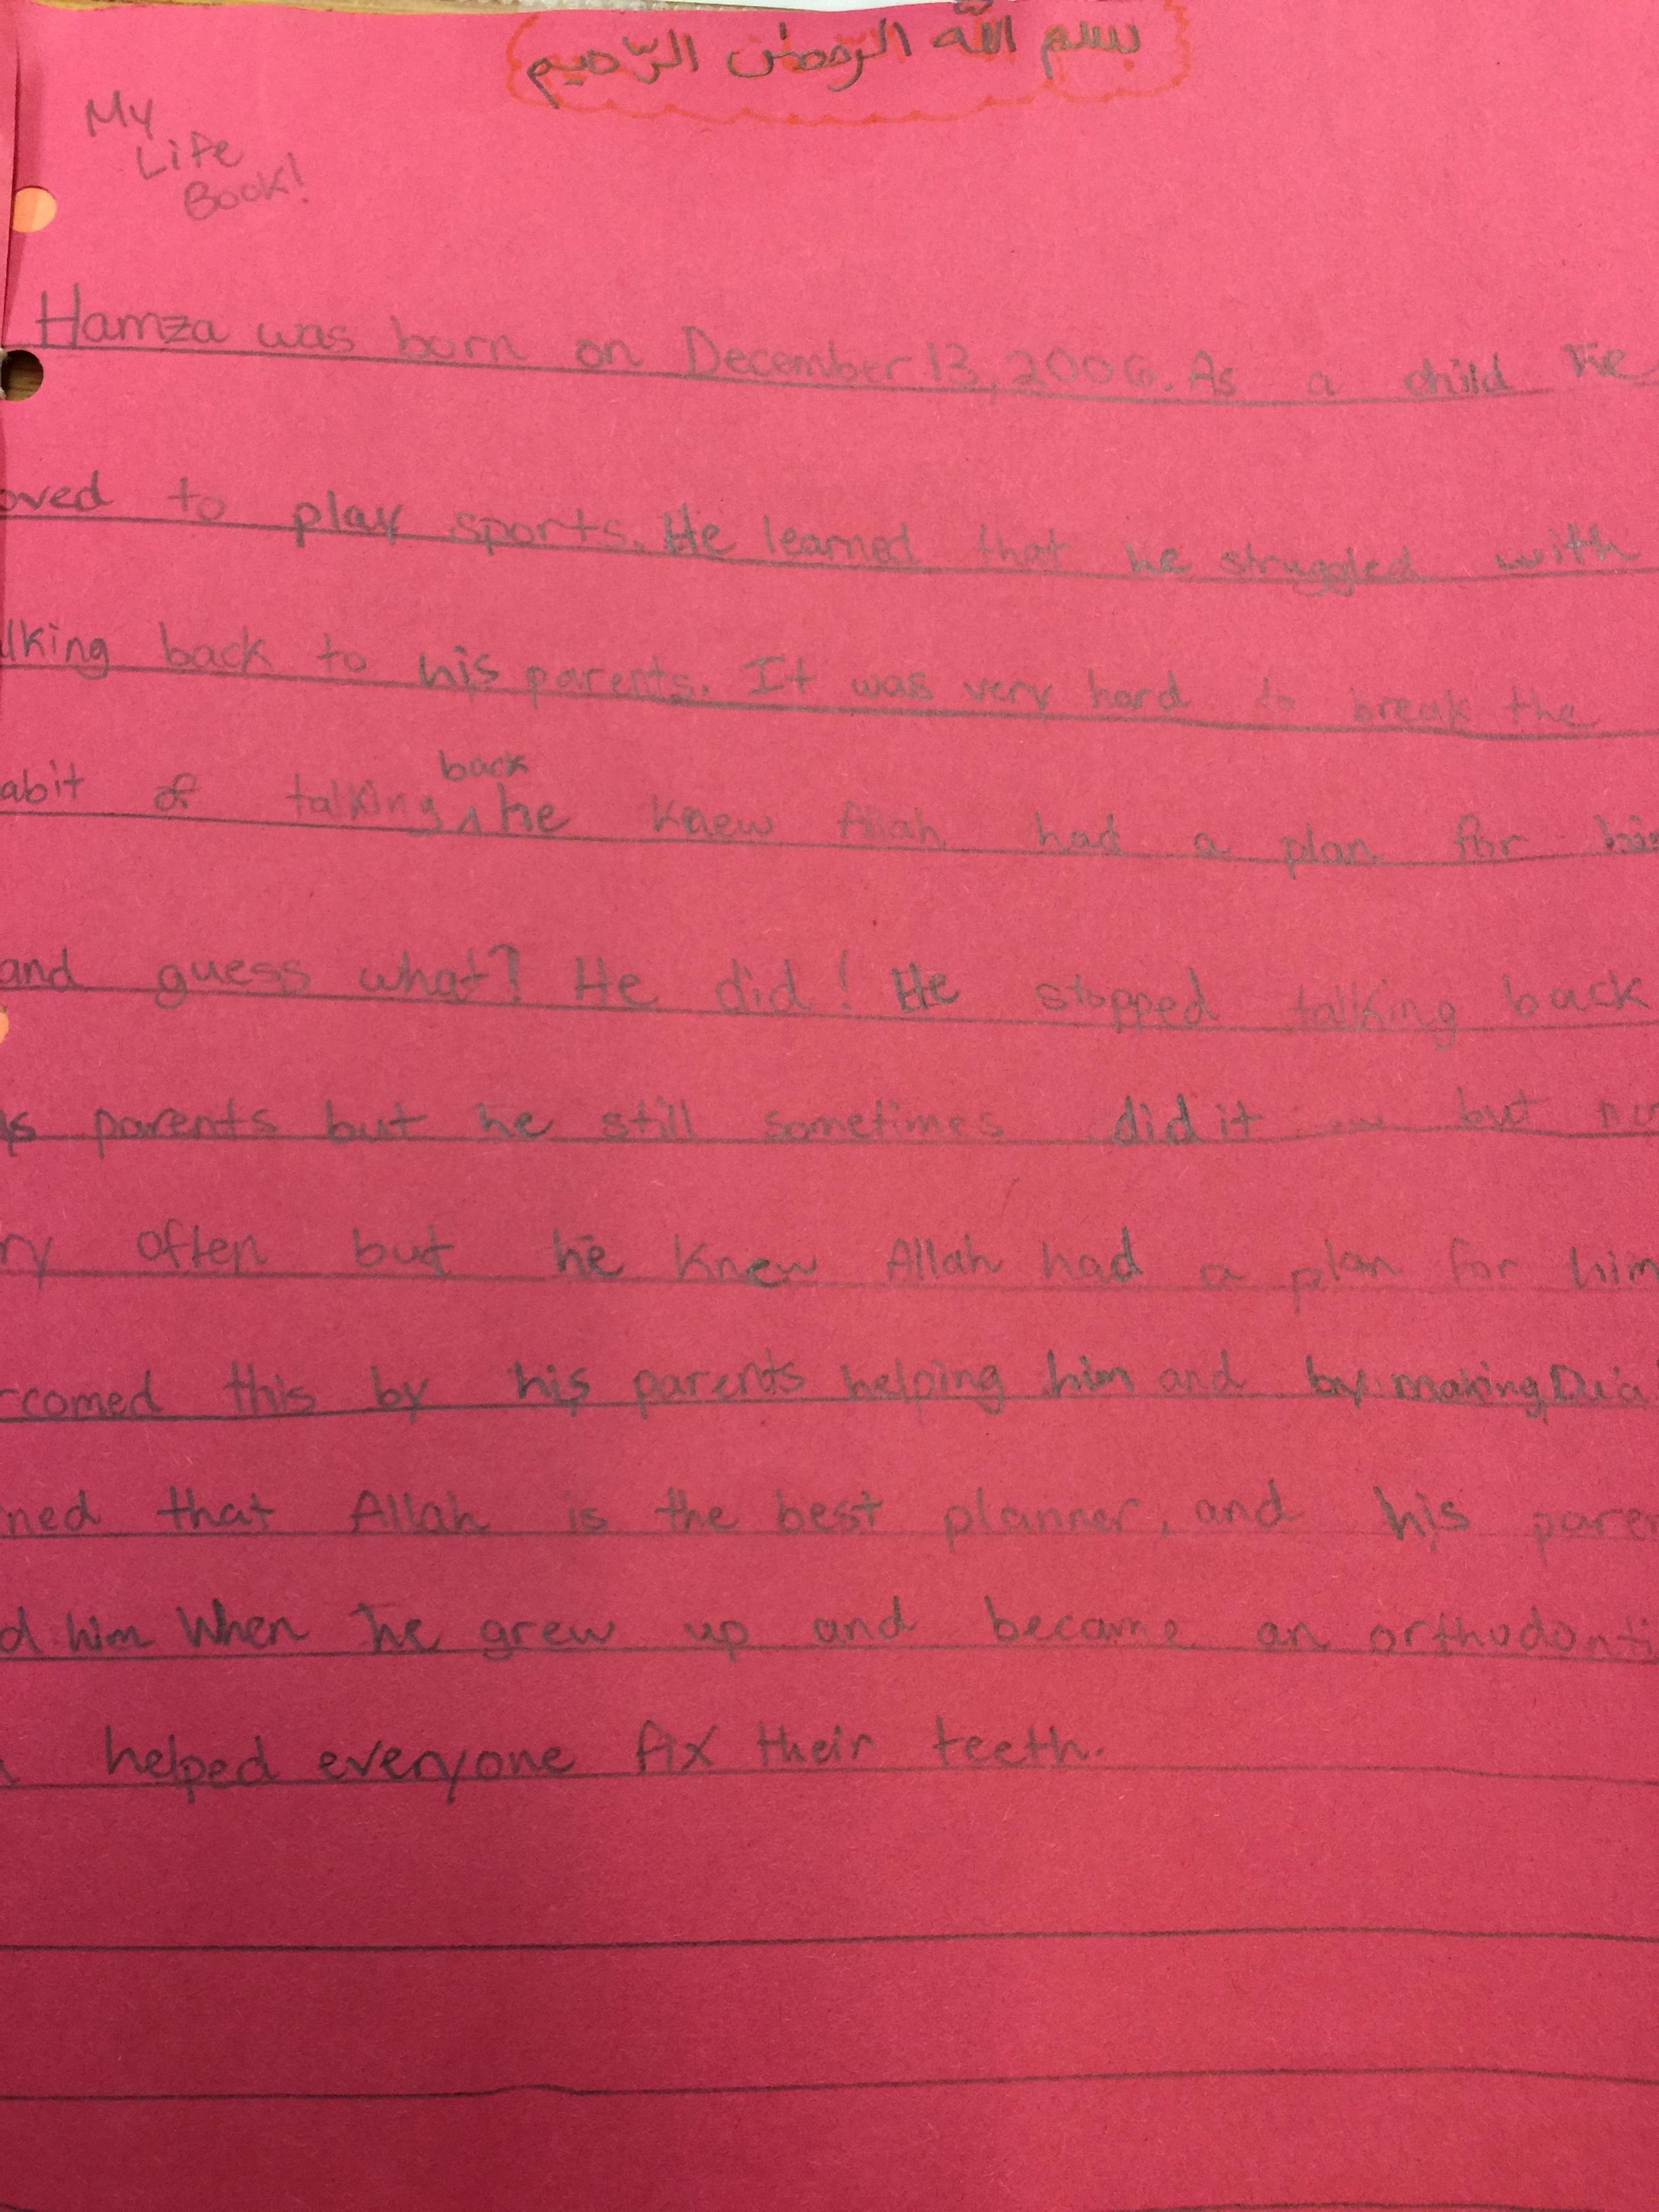 بسم الله الرحمن الرحيم
My
Life
Book!
Hamza was born on December 13, 2006. As a child he
oved to play sports. He learned that he struggled with
lking back to his parents. It was very hard to break the
abit of talking back he knew Allah had a plan for him
and guess what? He did! He stopped talking back
is parents but he still sometimes did it but no
ry often but he knew Allah had a plan for him
rcomed this by his parents helping him and by making Du'a
ned that Allah is the best planner, and his paren
d him When he grew up and became an orthodonti
helped everyone fix their teeth.